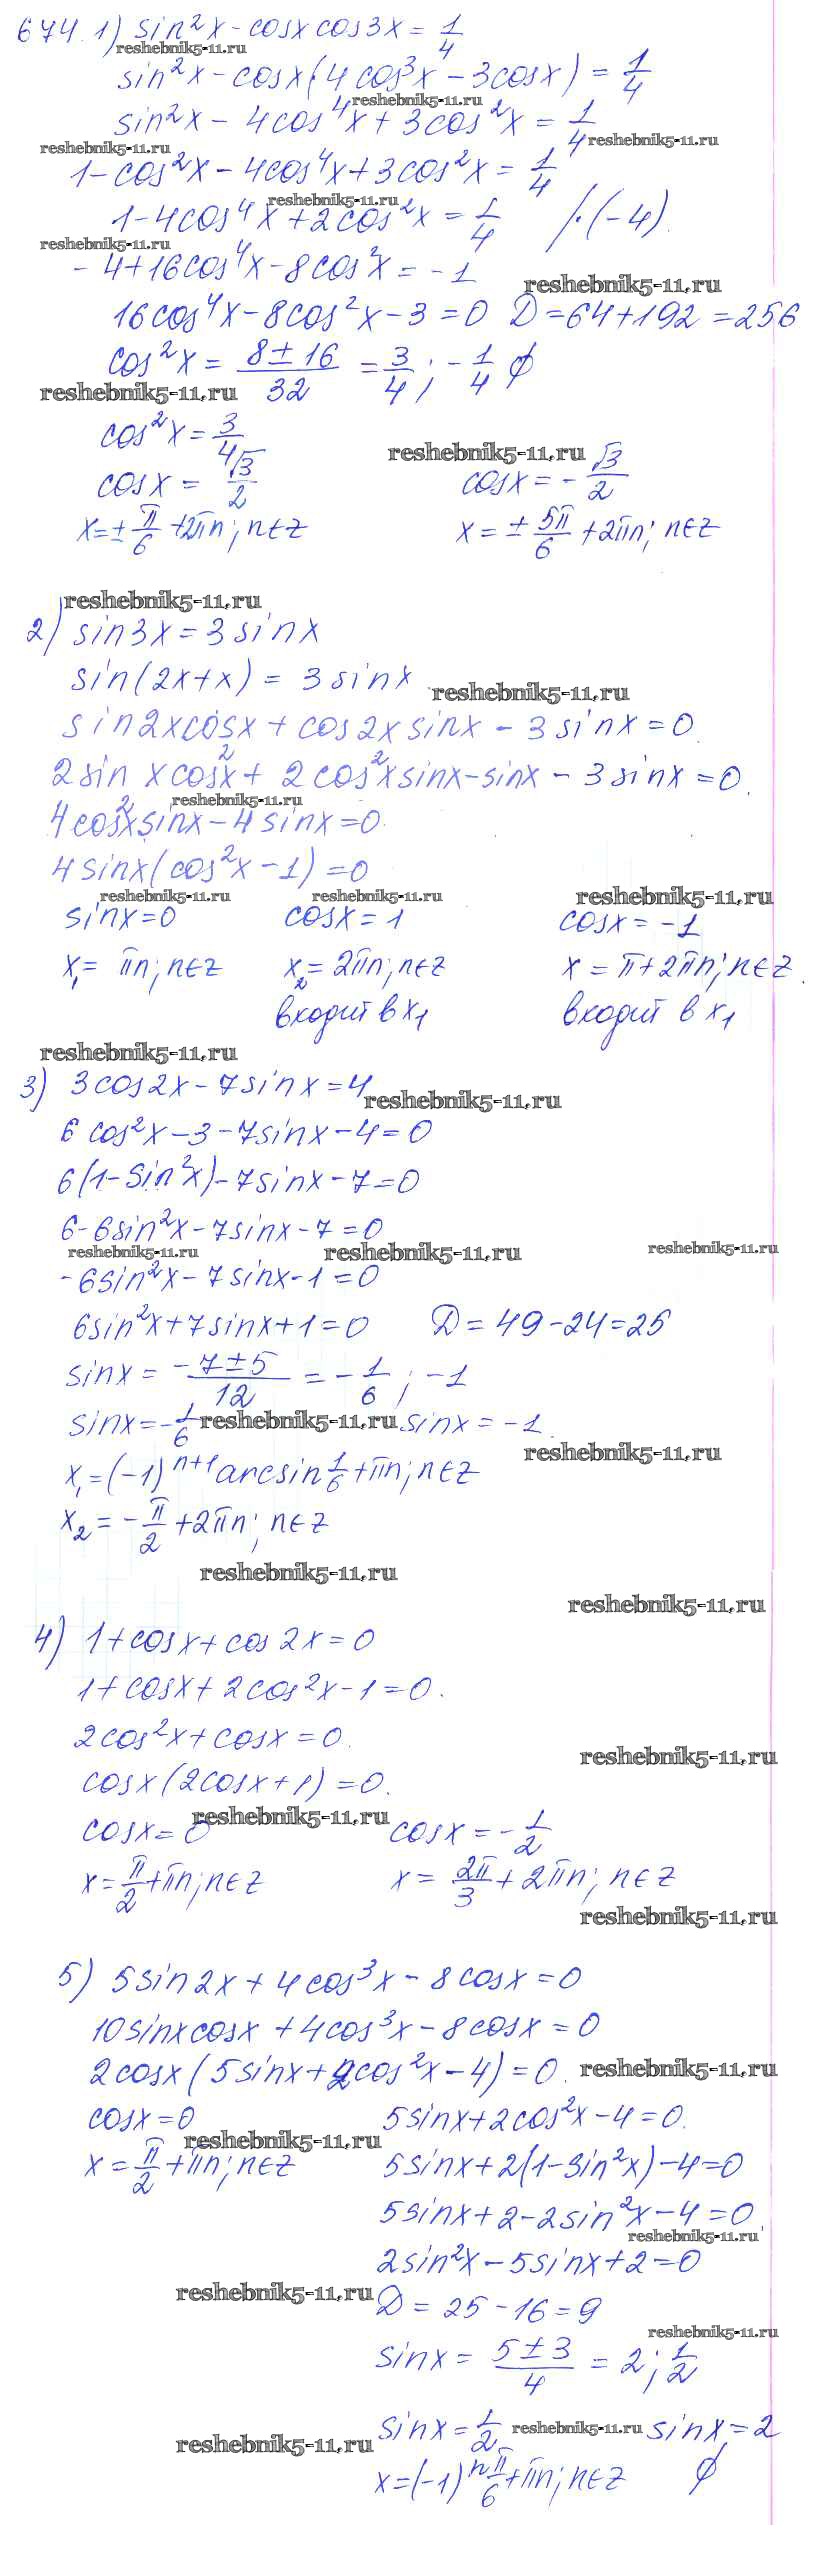 674. 1) sin²x - cosx cos3x = 1/4
reshebnik5-11.ru
sin²x - cosx(4cos³x - 3cosx) = 1/4
reshebnik5-11.ru
sin²x - 4cos⁴x + 3cos²x = 1/4
reshebnik5-11.ru reshebnik5-11.ru
1 - cos²x - 4cos⁴x + 3cos²x = 1/4
reshebnik5-11.ru
1 - 4cos⁴x + 2cos²x = 1/4 /·(-4).
reshebnik5-11.ru
- 4 + 16cos⁴x - 8cos²x = -1
reshebnik5-11.ru
16cos⁴x - 8cos²x - 3 = 0 D = 64 + 192 = 256
cos²x = (8 ± 16)/32 = 3/4; -1/4 ∅
reshebnik5-11.ru
cos²x = 3/4
reshebnik5-11.ru
cosx = √3/2 cosx = -√3/2
x = ± π/6 + 2πn; n∈Z x = ± 5π/6 + 2πn; n∈Z
reshebnik5-11.ru
2) sin3x = 3sinx
sin(2x+x) = 3sinx
reshebnik5-11.ru
sin2xcosx + cos2xsinx - 3sinx = 0.
2sinxcos²x + 2cos²xsinx - sinx - 3sinx = 0.
reshebnik5-11.ru
4cos²xsinx - 4sinx = 0
4sinx(cos²x - 1) = 0
reshebnik5-11.ru reshebnik5-11.ru reshebnik5-11.ru
sinx = 0 cosx = 1 cosx = -1
x₁ = πn; n∈Z x₂ = 2πn; n∈Z x = π + 2πn; n∈Z.
входит в x₁ входит в x₁
reshebnik5-11.ru
3) 3cos2x - 7sinx = 4
reshebnik5-11.ru
6cos²x - 3 - 7sinx - 4 = 0
6(1 - sin²x) - 7sinx - 7 = 0
6 - 6sin²x - 7sinx - 7 = 0
reshebnik5-11.ru reshebnik5-11.ru reshebnik5-11.ru
-6sin²x - 7sinx - 1 = 0
6sin²x + 7sinx + 1 = 0 D = 49 - 24 = 25
sinx = (-7 ± 5)/12 = -1/6; -1
sinx = -1/6 reshebnik5-11.ru sinx = -1.
reshebnik5-11.ru
x₁ = (-1)ⁿ⁺¹arcsin 1/6 + πn; n∈Z
x₂ = -π/2 + 2πn; n∈Z
reshebnik5-11.ru
reshebnik5-11.ru
4) 1 + cosx + cos2x = 0
1 + cosx + 2cos²x - 1 = 0.
2cos²x + cosx = 0.
reshebnik5-11.ru
cosx(2cosx + 1) = 0.
reshebnik5-11.ru
cosx = 0 cosx = -1/2
x = π/2 + πn; n∈Z x = 2π/3 + 2πn; n∈Z
reshebnik5-11.ru
5) 5sin2x + 4cos³x - 8cosx = 0
10sinxcosx + 4cos³x - 8cosx = 0
2cosx(5sinx + 2cos²x - 4) = 0. reshebnik5-11.ru
cosx = 0 5sinx + 2cos²x - 4 = 0.
reshebnik5-11.ru
x = π/2 + πn; n∈Z 5sinx + 2(1 - sin²x) - 4 = 0
5sinx + 2 - 2sin²x - 4 = 0
reshebnik5-11.ru
2sin²x - 5sinx + 2 = 0
reshebnik5-11.ru
D = 25 - 16 = 9
reshebnik5-11.ru
sinx = (5 ± 3)/4 = 2; 1/2
sinx = 1/2 reshebnik5-11.ru sinx = 2
reshebnik5-11.ru
x = (-1)ⁿ π/6 + πn; n∈Z ∅